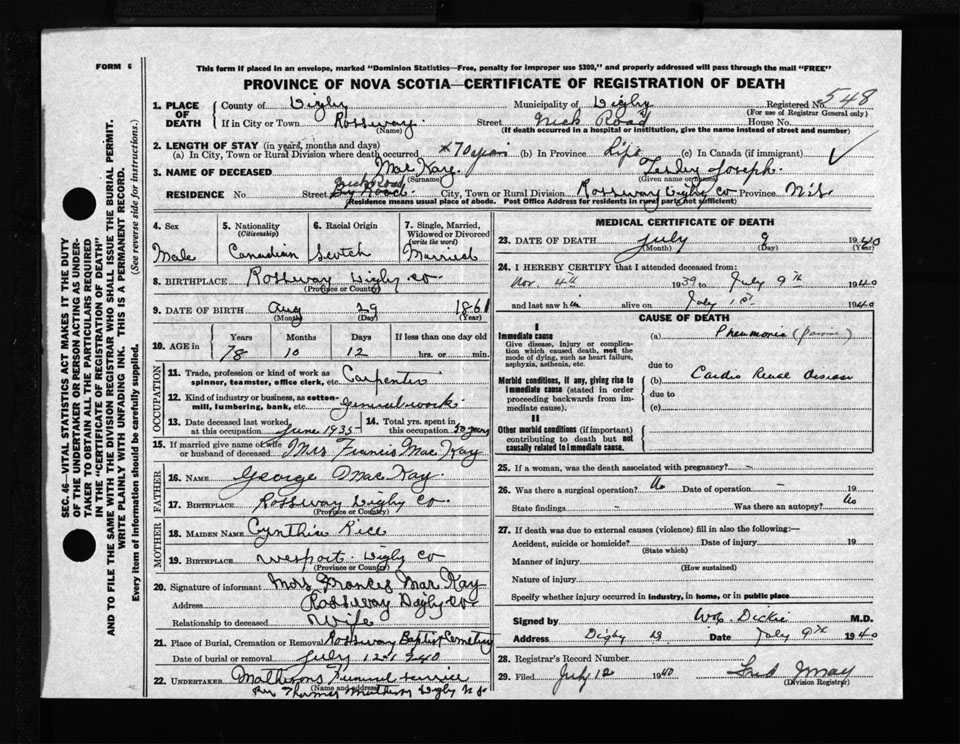 FORM 6
This form if placed in an envelope, marked "Dominion Statistics—Free, penalty for improper use $300," and properly addressed will pass through the mail "FREE"
PROVINCE OF NOVA SCOTIA—CERTIFICATE OF REGISTRATION OF DEATH
SEC. 46—VITAL STATISTICS ACT MAKES IT THE DUTY
OF THE UNDERTAKER OR PERSON ACTING AS UNDER-
TAKER TO OBTAIN ALL THE PARTICULARS REQUIRED
IN THE "CERTIFICATE OF REGISTRATION OF DEATH"
AND TO FILE THE SAME WITH THE DIVISION REGISTRAR WHO SHALL ISSUE THE BURIAL PERMIT.
WRITE PLAINLY WITH UNFADING INK. THIS IS A PERMANENT RECORD.
Every item of information should be carefully supplied. (See reverse side for instructions.)
1. PLACE OF DEATH
County of Digby Municipality of Digby Registered No. 548
(For use of Registrar General only)
If in City or Town Rossway (Name) Street Road House No.
(If death occurred in a hospital or institution, give the name instead of street and number)
2. LENGTH OF STAY (in years, months and days)
(a) In City, Town or Rural Division where death occurred 70 years (b) In Province Life (c) In Canada (if immigrant)
3. NAME OF DECEASED Mac Kay (Surname) Lesley Joseph (Given name or names)
RESIDENCE No. Street City, Town or Rural Division Rossway Digby Co Province N.S.
(Residence means usual place of abode. Post Office Address for residents in rural parts not sufficient)
4. Sex Male
5. Nationality (Citizenship) Canadian
6. Racial Origin Scotch
7. Single, Married, Widowed or Divorced (write the word) Married
8. BIRTHPLACE Rossway Digby Co
(Province or Country)
9. DATE OF BIRTH Aug (Month) 29 (Day) 1861 (Year)
10. AGE in Years 78 Months 10 Days 12 If less than one day old hrs. or min.
OCCUPATION
11. Trade, profession or kind of work as spinner, teamster, office clerk, etc. Carpenter
12. Kind of industry or business, as cotton-mill, lumbering, bank, etc. General work
13. Date deceased last worked at this occupation June 1935 14. Total yrs. spent in this occupation 50 years
15. If married give name of wife or husband of deceased Mrs Francis Mac Kay
FATHER
16. NAME George Mac Kay
17. BIRTHPLACE Rossway Digby Co
(Province or Country)
MOTHER
18. MAIDEN NAME Cynthia Rice
19. BIRTHPLACE Westport Digby Co
(Province or Country)
20. Signature of informant Mrs Francis Mac Kay
Address Rossway Digby Co
Relationship to deceased Wife
21. Place of Burial, Cremation or Removal Rossway Baptist Cemetery
Date of burial or removal July 12 1940
22. UNDERTAKER Mathesons Funeral Service
(Name and address)
Digby N S
MEDICAL CERTIFICATE OF DEATH
23. DATE OF DEATH July (Month) 9 (Day) 1940 (Year)
24. I HEREBY CERTIFY that I attended deceased from:
Nov 4th 1939 to July 9th 1940
and last saw him alive on July 1st 1940
CAUSE OF DEATH
I
Immediate cause
Give disease, injury or complication which caused death, not the mode of dying, such as heart failure, asphyxia, asthenia, etc.
(a) Pneumonia
due to
Morbid conditions, if any, giving rise to immediate cause (stated in order proceeding backwards from immediate cause).
(b) Cardio Renal Disease
due to
(c)
II
Other morbid conditions (if important) contributing to death but not causally related to immediate cause.
25. If a woman, was the death associated with pregnancy? -
26. Was there a surgical operation? No Date of operation - 19
State findings - Was there an autopsy? No
27. If death was due to external causes (violence) fill in also the following:—
Accident, suicide or homicide? Date of injury 19
(State which)
Manner of injury
(How sustained)
Nature of injury
Specify whether injury occurred in industry, in home, or in public place
Signed by Dickie M.D.
Address Digby NS Date July 9th 1940
28. Registrar's Record Number
29. Filed July 12 1940 May
(Division Registrar)